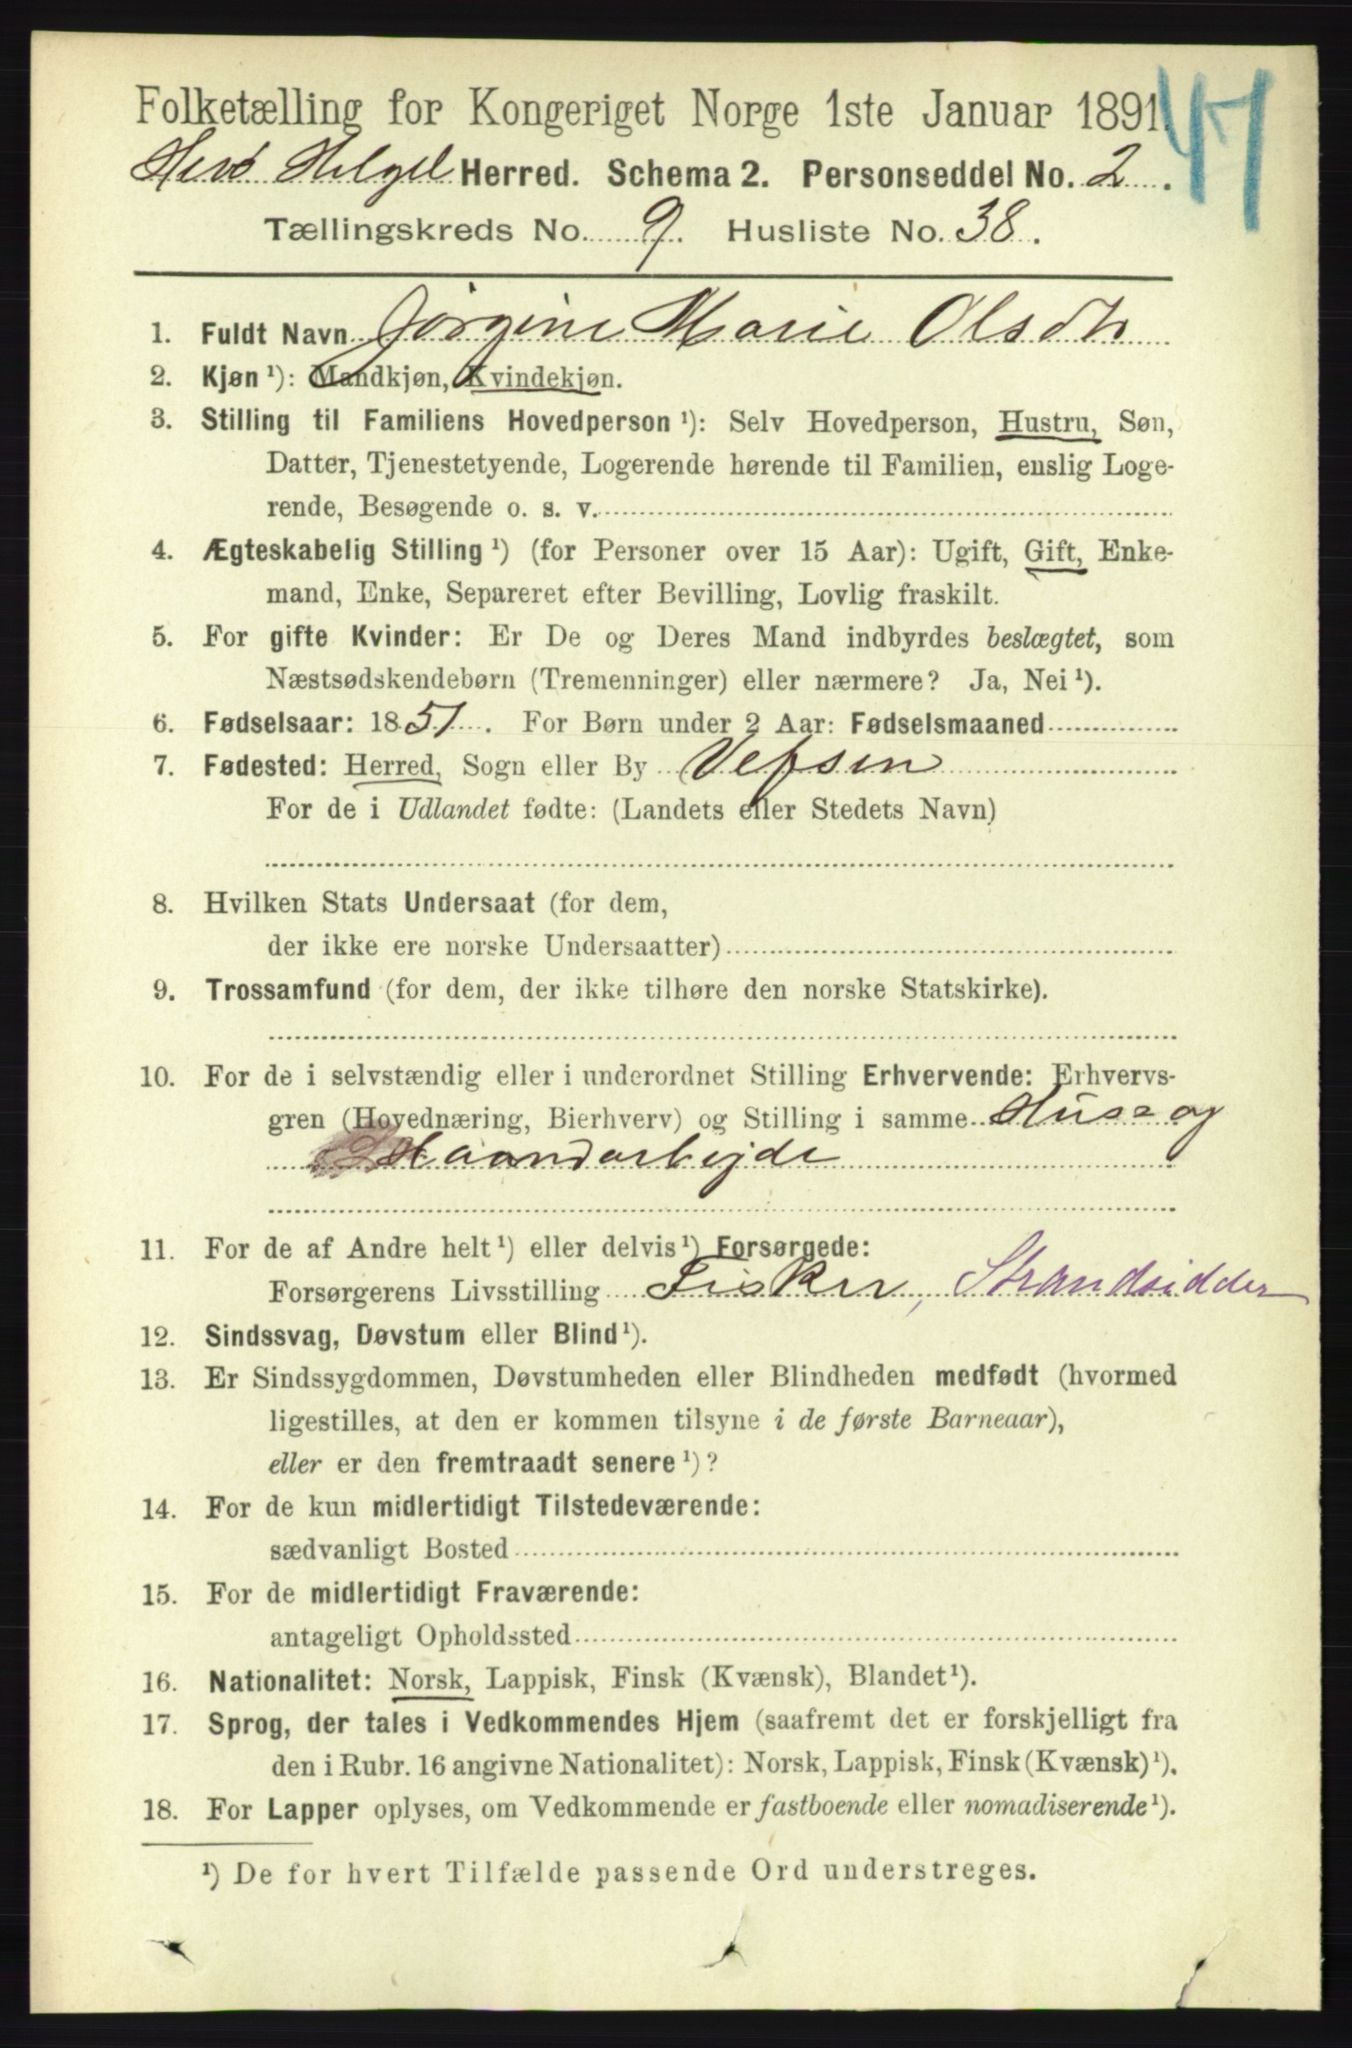 Folketælling for Kongeriget Norge 1ste Januar 1891.
47
Herø Helgel Herred. Schema 2. Personseddel No. 2.
Tællingskreds No. 9. Husliste No. 38.
1. Fuldt Navn Jörgine Marie Olsdtr
2. Kjøn ¹): Mandkjøn, Kvindekjøn.
3. Stilling til Familiens Hovedperson ¹): Selv Hovedperson, Hustru, Søn,
Datter, Tjenestetyende, Logerende hørende til Familien, enslig Loge-
rende, Besøgende o. s. v.
4. Ægteskabelig Stilling ¹) (for Personer over 15 Aar): Ugift, Gift, Enke-
mand, Enke, Separeret efter Bevilling, Lovlig fraskilt.
5. For gifte Kvinder: Er De og Deres Mand indbyrdes beslægtet, som
Næstsødskendebørn (Tremenninger) eller nærmere? Ja, Nei ¹).
6. Fødselsaar: 1851. For Børn under 2 Aar: Fødselsmaaned
7. Fødested: Herred, Sogn eller By Vefsen
For de i Udlandet fødte: (Landets eller Stedets Navn)
8. Hvilken Stats Undersaat (for dem,
der ikke ere norske Undersaatter)
9. Trossamfund (for dem, der ikke tilhøre den norske Statskirke).
10. For de i selvstændig eller i underordnet Stilling Erhvervende: Erhvervs-
gren (Hovednæring, Bierhverv) og Stilling i samme Huse og
Haandarbejde
11. For de af Andre helt ¹) eller delvis ¹) Forsørgede:
Forsørgerens Livsstilling Fisker, Strandsidder
12. Sindssvag, Døvstum eller Blind ¹).
13. Er Sindssygdommen, Døvstumheden eller Blindheden medfødt (hvormed
ligestilles, at den er kommen tilsyne i de første Barneaar),
eller er den fremtraadt senere ¹)?
14. For de kun midlertidigt Tilstedeværende:
sædvanligt Bosted
15. For de midlertidigt Fraværende:
antageligt Opholdssted
16. Nationalitet: Norsk, Lappisk, Finsk (Kvænsk), Blandet ¹).
17. Sprog, der tales i Vedkommendes Hjem (saafremt det er forskjelligt fra
den i Rubr. 16 angivne Nationalitet): Norsk, Lappisk, Finsk (Kvænsk) ¹).
18. For Lapper oplyses, om Vedkommende er fastboende eller nomadiserende ¹).
¹) De for hvert Tilfælde passende Ord understreges.